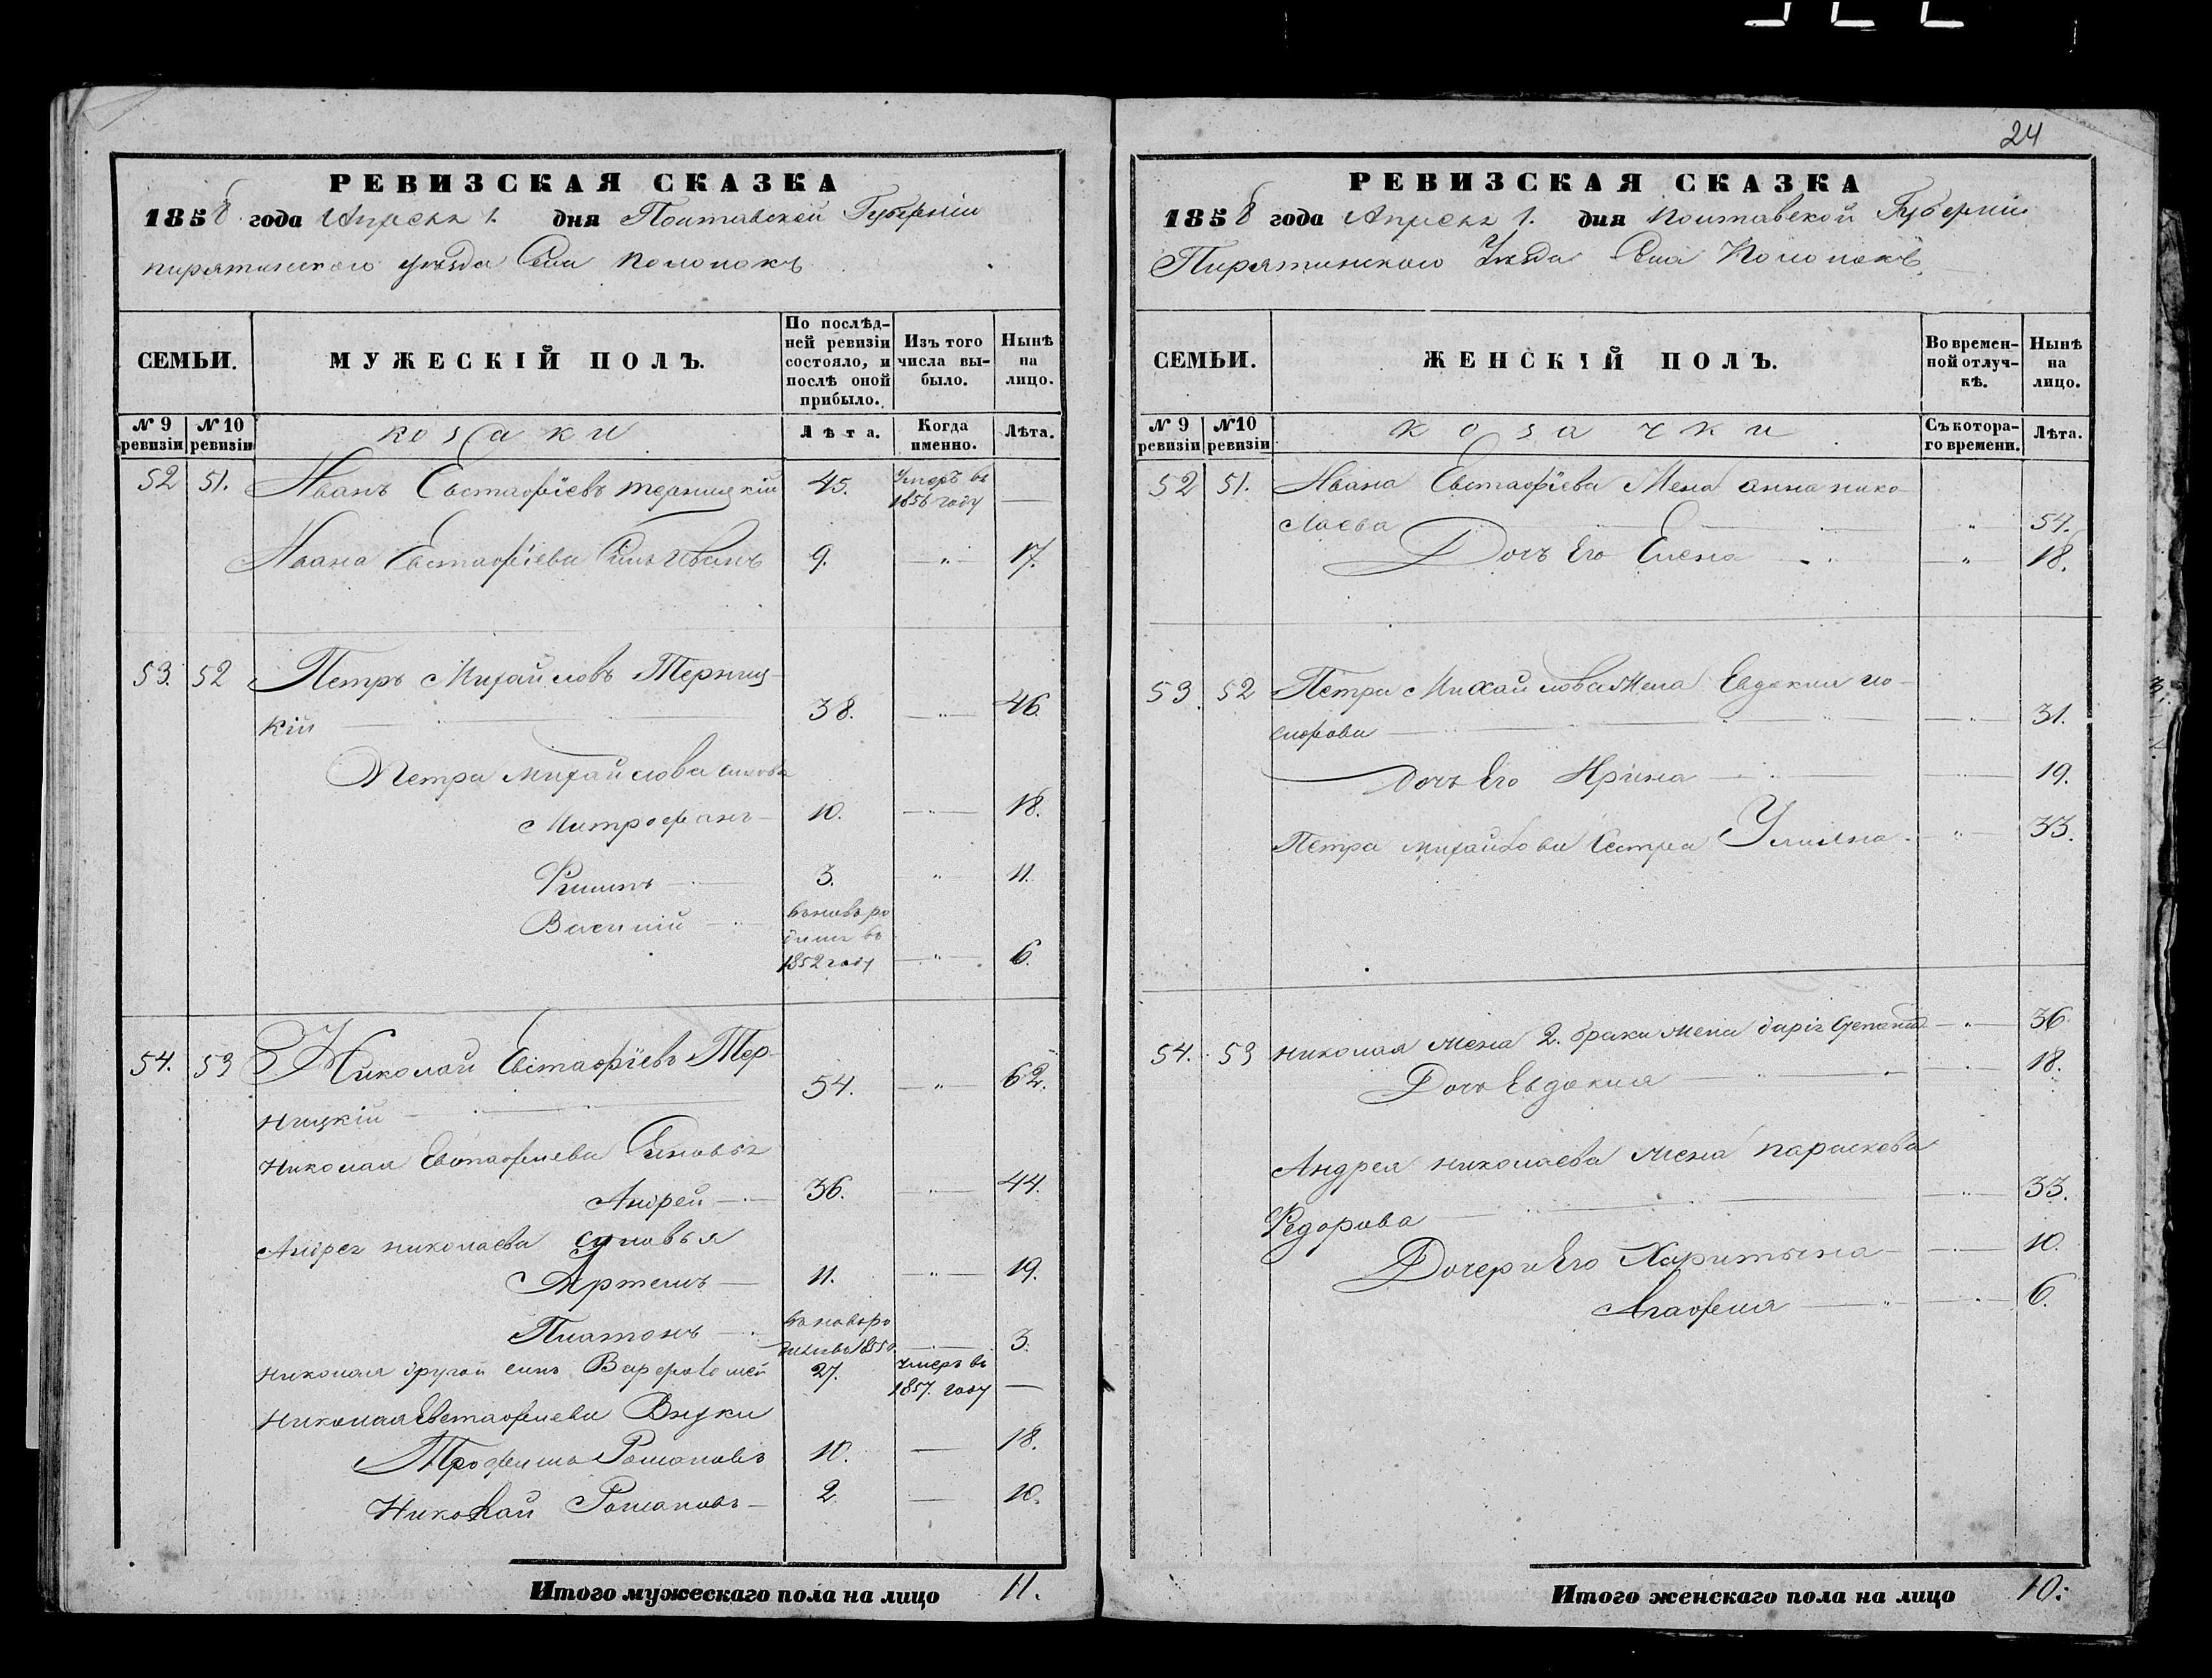 24
РЕВИЗСКАЯ СКАЗКА
1858 года Апреля 1. дня Полтавской Губернии
пирятинского уезда Села
СЕМЬИ.
МУЖЕСКІЙ ПОЛЪ.
По послѣд-
ней ревизіи
состояло, и
послѣ оной
прибыло.
Изъ того
числа вы-
было.
Нынѣ
на
лицо.
№ 9 ревизіи
№ 10 ревизіи
козаки
Лѣта.
Когда именно.
Лѣта.
52 51. Иванъ Евстафіевъ терницкій 45. Умеръ въ
1856 году —
Ивана Евстафіева Сынъ Иванъ 9. — „ — 17.
53. 52 Петръ Михайловъ Терниц-
кій 38. — „ — 46.
Петра Михайлова сыновья
Митрофанъ 10. — „ — 18.
Филипъ 3. „ 11.
Василий вьновь ро
дился въ
1852 году — „ — 6.
54. 53 Николай Евстафіевъ Тер-
ницкій 54. — „ — 62.
Николая Евстафиева Сыновья
Андрей 36. — „ — 44.
Андрея николаева сыновья
Артемъ 11. — „ — 19.
Платонъ вьновь ро
3.
николая другой сынъ Варфоломей 27. умеръ въ
1857. году —
Николая Евстафиева Внуки
Трофимъ Романовъ 10. — 18.
Николай Романовъ 2 — 10.
Итого мужескаго пола на лицо 11.
РЕВИЗСКАЯ СКАЗКА
1858 года Апреля 1. дня Полтавской Губернии
Пирятинского Уезда Села
СЕМЬИ.
ЖЕНСКІЙ ПОЛЪ.
Во времен-
ной отлуч-
кѣ.
Нынѣ
на
лицо.
№ 9 ревизіи
№ 10 ревизіи
козачки
Съ котора-
го времени.
Лѣта.
52 51. Ивана Евстафіева Жена анна нико-
лаева „ 54.
Дочъ Его Елена — „ 18.
53. 52 Петра Михайлова Жена Евдокия
— „ — 31.
дочъ Его Ирина 19.
Петра михайлова Сестра Улияна — „ — 33.
54. 53 николая Жена 2. брака жена дарія — „ — 36.
Дочъ Евдокия 18.
Андрея николаева жена параскева
Федорова — „ — 33.
Дочери Его Харитына 10.
Агафия 6.
Итого женскаго пола на лицо 10.